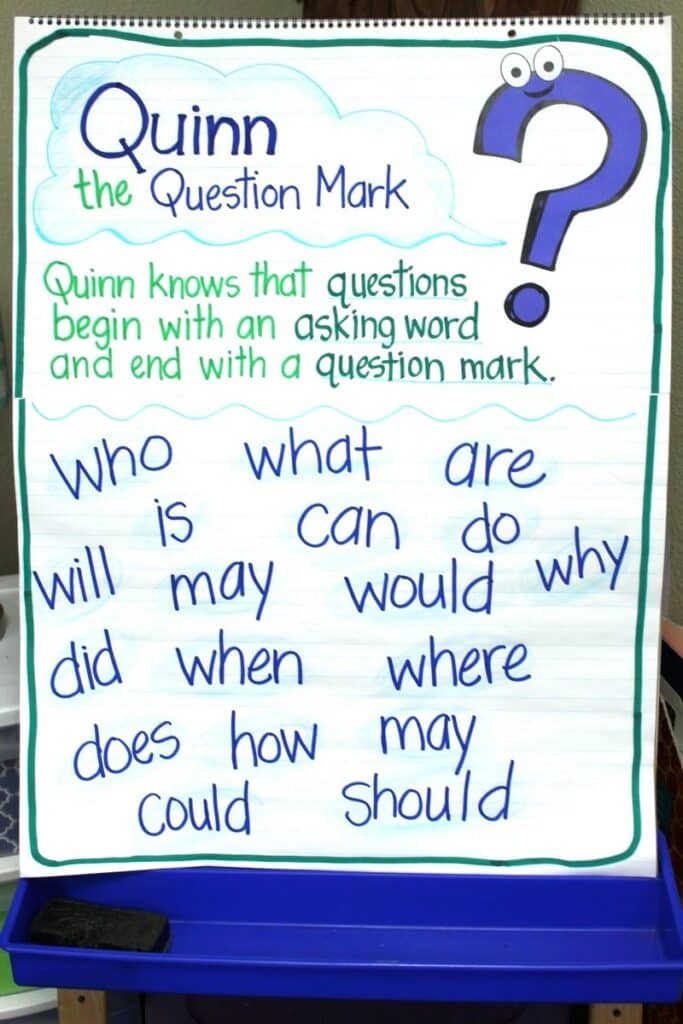 Quinn
the Question Mark
Quinn knows that questions
begin with an asking word
and end with a question mark.
who what are
is can do
will may would why
did when where
does how may
could should